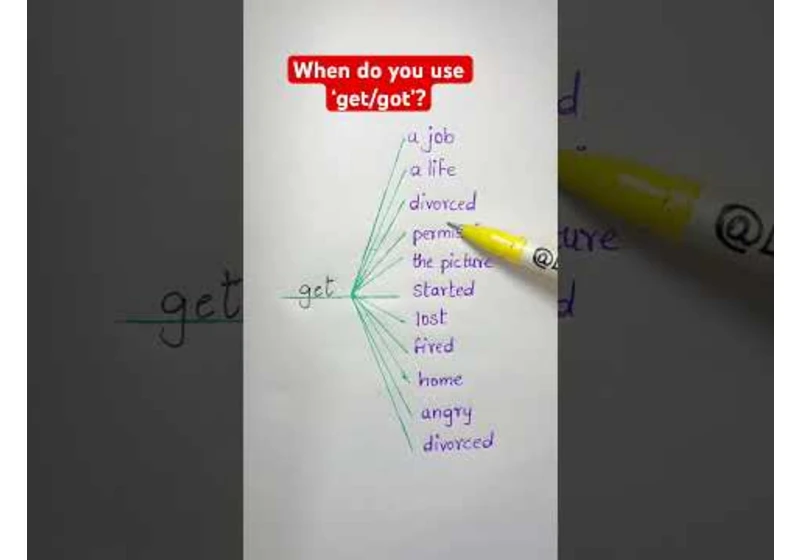 When do you use
'get/got'?
a job
a life
divorced
the picture
get
started
lost
fired
home
angry
divorced
get